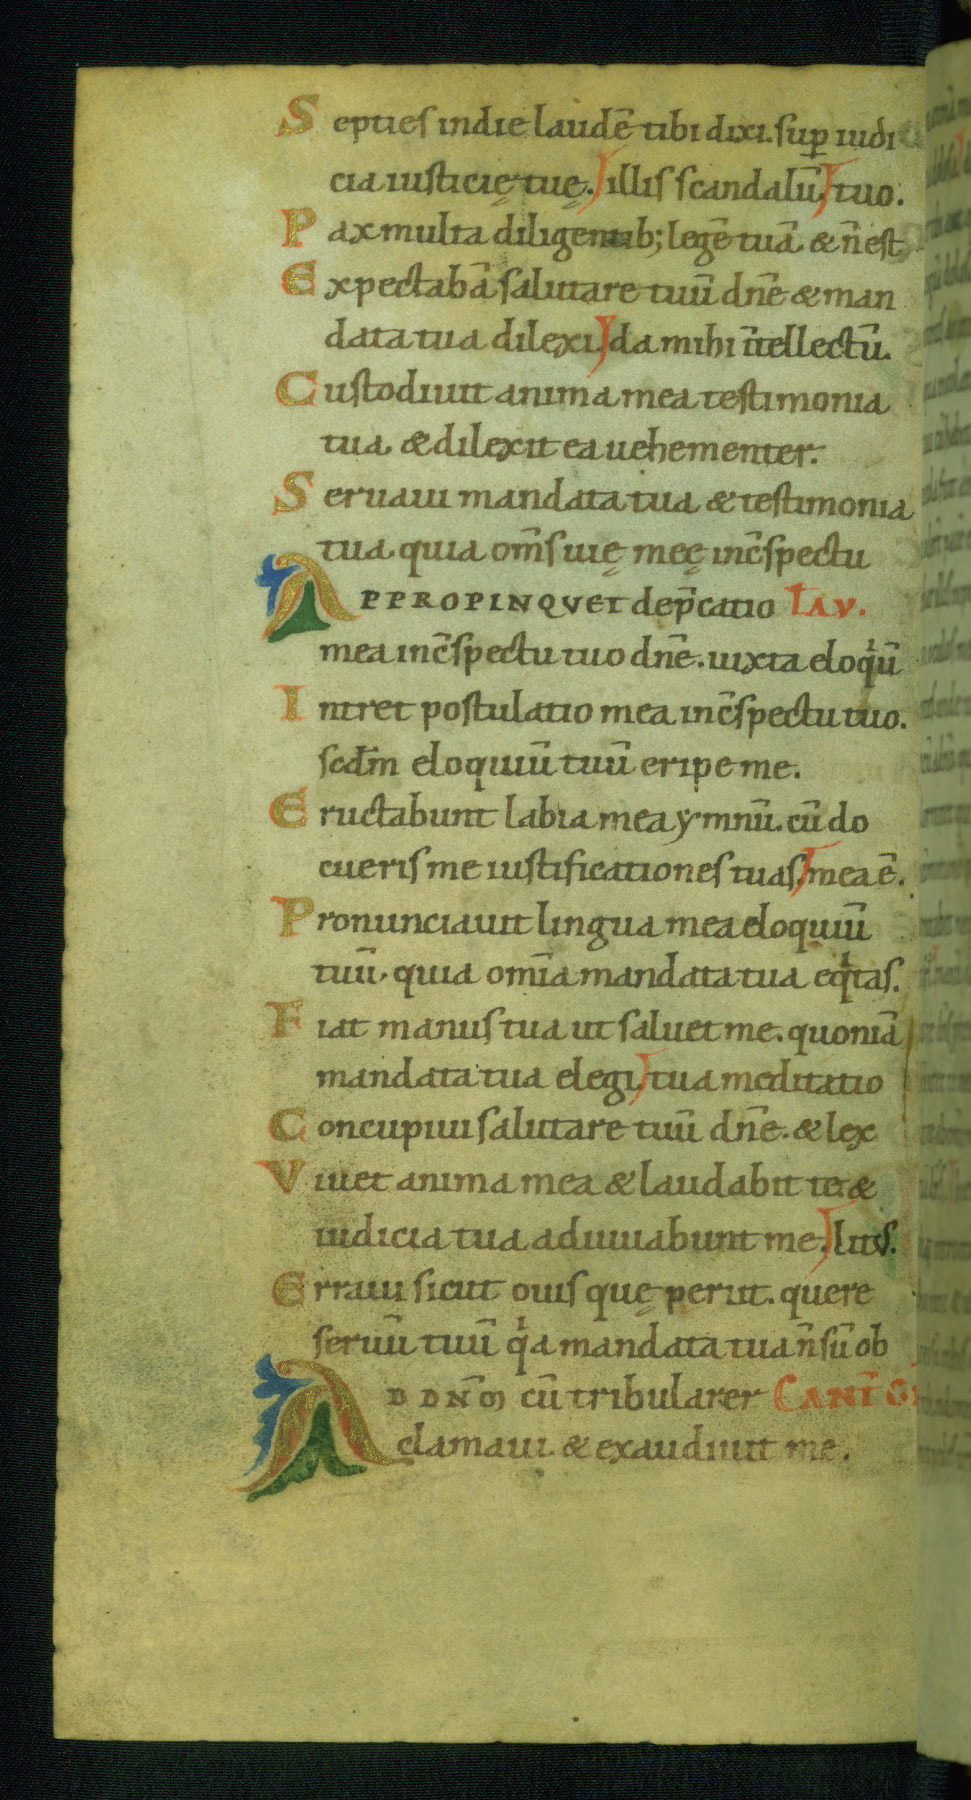 Septies in die laudē tibi dixi. sup̄ iudi
cia iusticię tuę. illis scandalū tuo.
Pax multa diligentib; legē tuā & n̄ est
Expectabā salutare tuū dn̄e & man
data tua dilexi da mihi ītellectū.
Custodiuit anima mea testimonia
tua & dilexit ea uehementer.
Seruaui mandata tua & testimonia
tua quia om̄s uię meę inc̄spectu
APPROPINQVET dep̄catio TAV.
mea inc̄spectu tuo dn̄e. iuxta eloq̍ū
Intret postulatio mea inc̄spectu tuo.
scd̄m eloquiū tuū eripe me.
Eructabunt labia mea ymnū. cū do
cueris me iustificationes tuas mea ē.
Pronunciauit lingua mea eloquiū
tuū. quia om̄ia mandata tua eq̍tas.
Fiat manus tua ut saluet me. quoniā
mandata tua elegi tua meditatio
Concupiui salutare tuū dn̄e. & lex
Viuet anima mea & laudabit te. &
iudicia tua adiuuabunt me. lituſ.
Erraui sicut ouis quę periit. quere
seruū tuū q̍a mandata tua n̄ sū ob
AD DN̄M cū tribularer CANT̄ GR
clamaui & exaudiuit me.